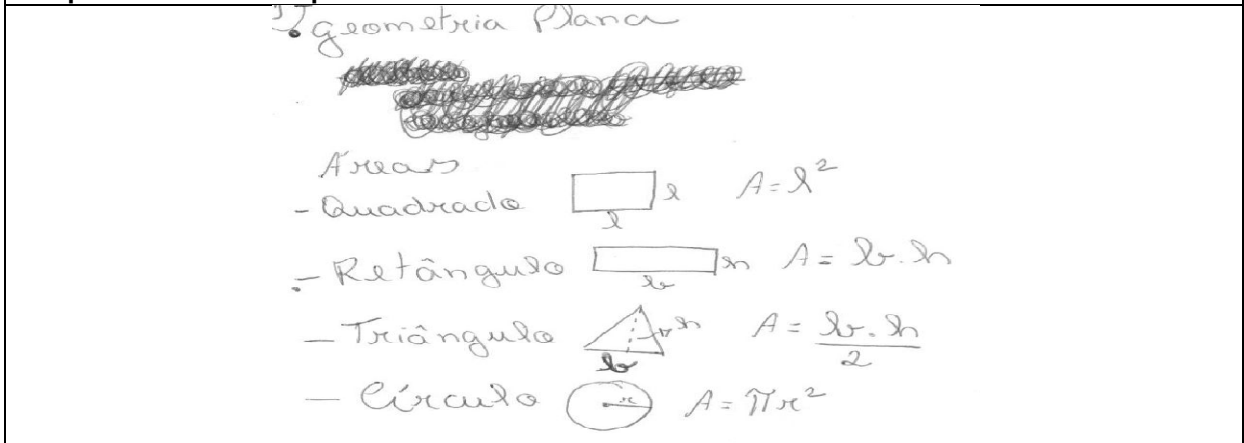 1) geometria Plana
Áreas
- Quadrado l l A = l²
- Retângulo b h A = b.h
- Triângulo b h A = b.h / 2
- Círculo r A = πr²